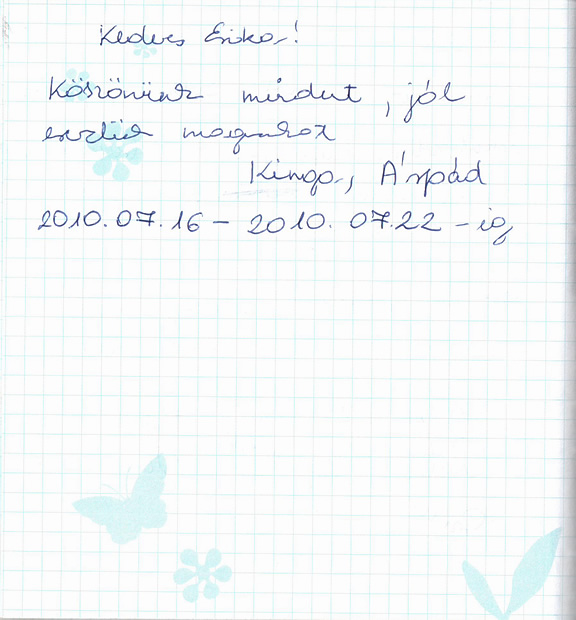 Kedves Erika!
Köszönünk mindent, jól
éreztük magunkat
Kinga, Árpád
2010.07.16 - 2010.07.22 - ig